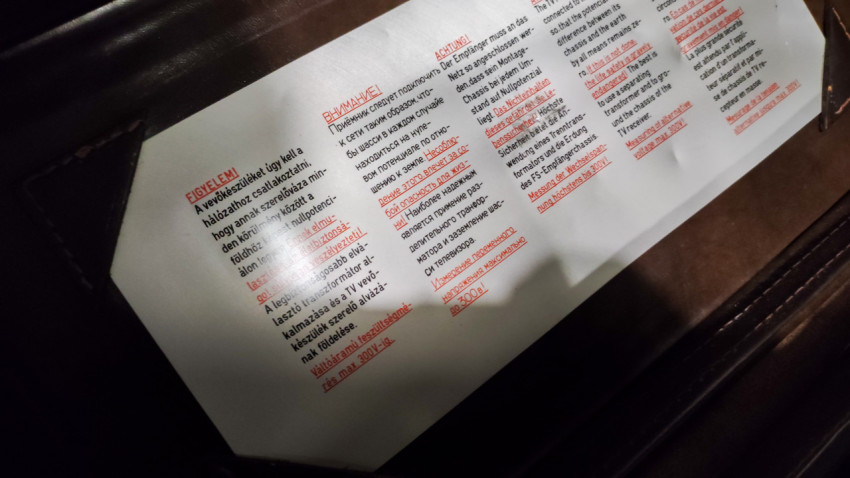 FIGYELEM!
A vevőkészüléket úgy kell a
hálózathoz csatlakoztatni,
hogy annak szerelőváza min-
den körülmény között a
földhöz nullpotenci-
álon
A leg elvá-
lasztó transzformátor al-
kalmazása és a TV vevő-
készülék szerelő alvázá-
nak földelése.
Váltóáramú feszültségmé-
rés max 300V-ig.
ВНИМАНИЕ!
Приёмник следует подключить
к сети таким образом, что-
бы шасси в каждом случае
находиться на нуле-
вом потенциале по отно-
шению к Земле. Несоблю-
дение этого влечет за со-
бой опасность для жиз-
ни! Наиболее надежным
является примение раз-
делительного трансфор-
матора и заземление шас-
си телевизора.
Измерение переменного
напряжения максимально
до 300в!
ACHTUNG!
Der Empfänger muss an das
Netz so angeschlossen wer-
den, dass sein Montage-
Chassis bei jedem Um-
stand auf Nullpotenzial
liegt. Das Nichteinhalten
dieses gefährdet die Le-
benssicherheit! Höchste
Sicherheit bietet die An-
wendung eines Trenntrans-
formators und die Erdung
des FS-Empfängerchassis.
Messung der Wechselspan-
nung höchstens bis 300V!
The TV
connected to
so, that the potencial
difference between its
chassis and the earth
by all means remains ze-
ro. If this is not done,
the life safety is
endangered! The best is
to use a separating
transformer and to gro-
und the chassis of the
TV receiver.
Measuring of alternative
voltage max. 300V!
ro. En cas de
cation de ces
sécurité de la vie est
La plus grande sécurité
est attendu par l'appli-
cation d'un transforma-
teur séparatif et par mi-
se de chassis de TV ré-
cepteur en masse.
Mesurage de la tension
alternative jusqu'a max. 300V!